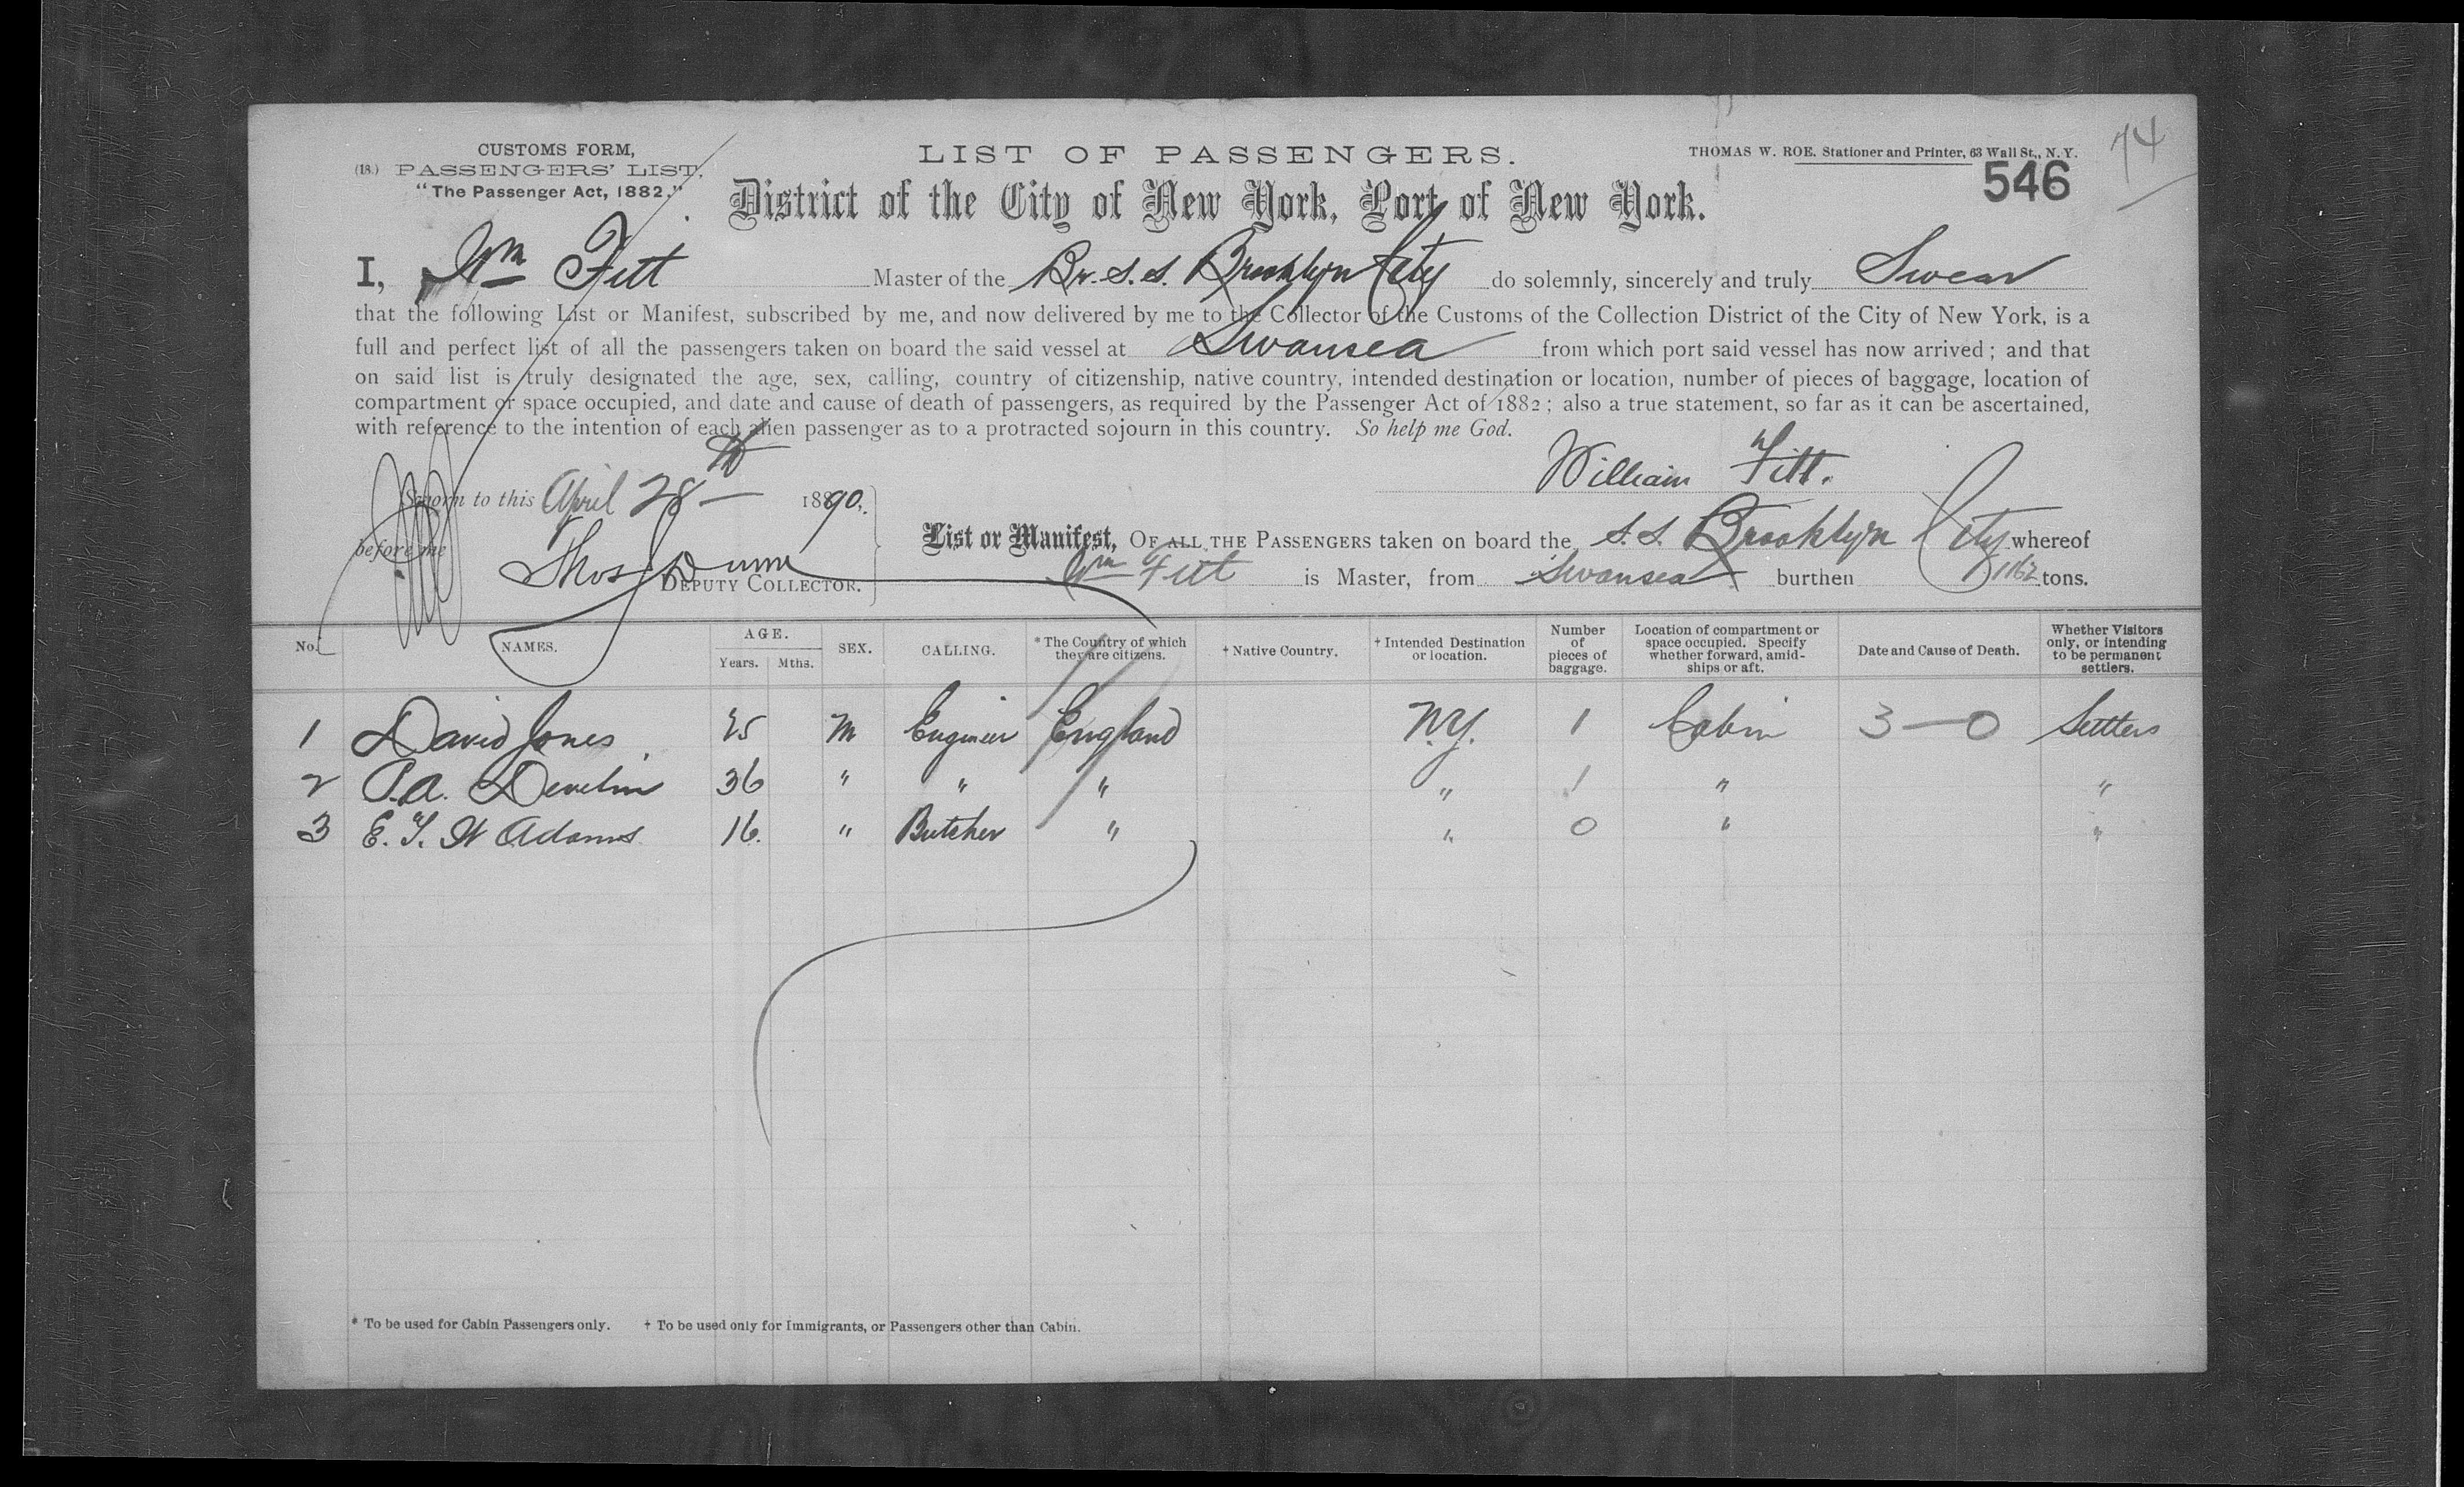 CUSTOMS FORM,
(18.) PASSENGERS' LIST,
"The Passenger Act, 1882."
LIST OF PASSENGERS.
THOMAS W. ROE. Stationer and Printer, 63 Wall St., N.Y.
74
546
District of the City of New York, Port of New York.
I, Wm Fitt Master of the Br. S.S. Brooklyn City do solemnly, sincerely and truly Swear
that the following List or Manifest, subscribed by me, and now delivered by me to the Collector of the Customs of the Collection District of the City of New York, is a
full and perfect list of all the passengers taken on board the said vessel at Swansea from which port said vessel has now arrived; and that
on said list is truly designated the age, sex, calling, country of citizenship, native country, intended destination or location, number of pieces of baggage, location of
compartment or space occupied, and date and cause of death of passengers, as required by the Passenger Act of 1882; also a true statement, so far as it can be ascertained,
with reference to the intention of each alien passenger as to a protracted sojourn in this country. So help me God.
William Fitt.
Sworn to this April 28th 1890.
before me
Thos Dunn
DEPUTY COLLECTOR.
List or Manifest, OF ALL THE PASSENGERS taken on board the S.S. Brooklyn City whereof
Wm Fitt is Master, from Swansea burthen 1162 tons.
No. NAMES. AGE. Years. Mths. SEX. CALLING. * The Country of which they are citizens. † Native Country. † Intended Destination or location. Number of pieces of baggage. Location of compartment or space occupied. Specify whether forward, amidships or aft. Date and Cause of Death. Whether Visitors only, or intending to be permanent settlers.
1 David Jones 25 M Engineer England N.Y. 1 Cabin 3—0 Settlers
2 P.A. Develin 36 " " " " 1 " "
3 E. T. W Adams 16. " Butcher " " 0 " "
* To be used for Cabin Passengers only. † To be used only for Immigrants, or Passengers other than Cabin.